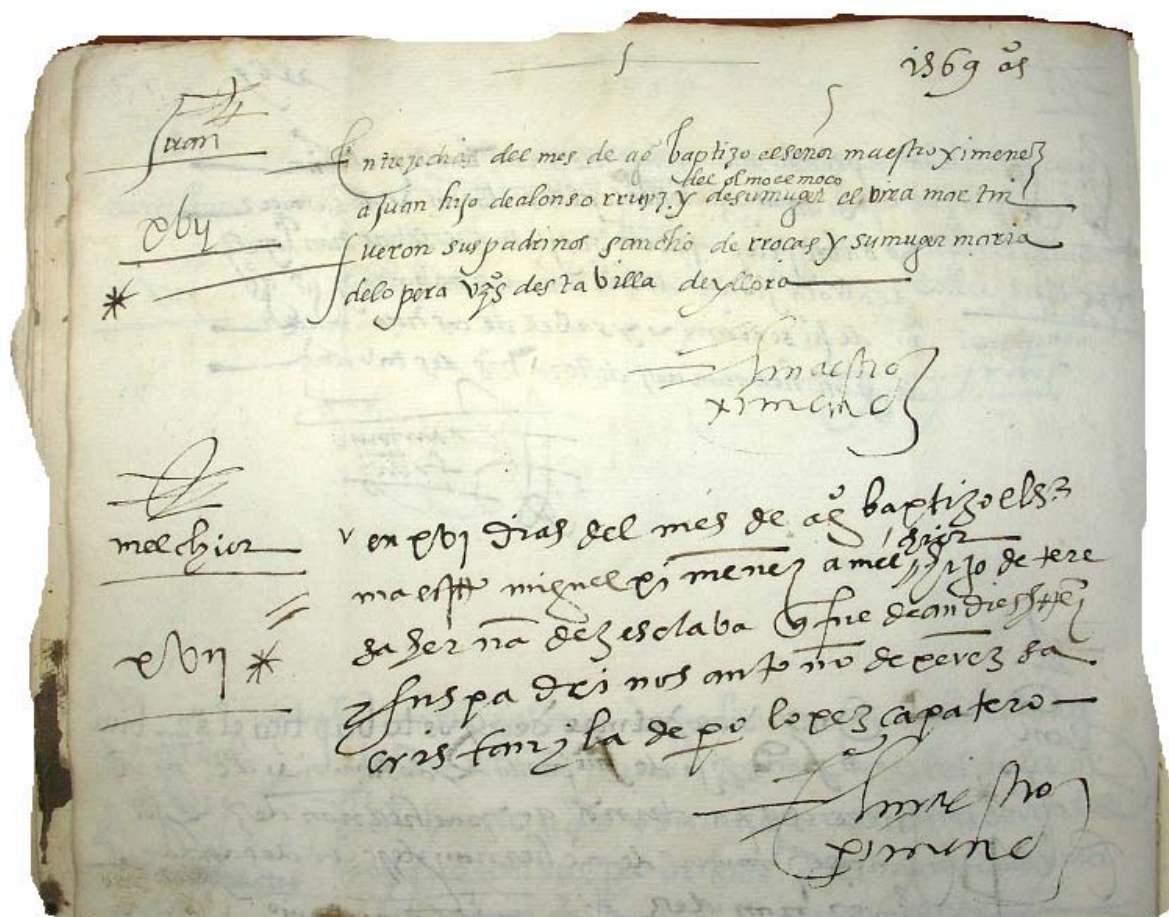 1569 as
Juan
En tres dias del mes de ago baptizo el señor maestro ximenez
del olmo el moço
a juan hijo de alonso rruyz y de su muger elvira martin
xvii
fueron sus padrinos sancho de rrojas y su muger maria
de lopera vzos desta villa de yllora
maestro
ximenez
melchior
en xvi dias del mes de ago baptizo el sr
maestro miguel ximenez a melchior hijo de tere
sa hernandez esclava que fue de andres
xvii
sus padrinos antonio de perez sa
cristan y la de po lopez çapatero
maestro
ximenez